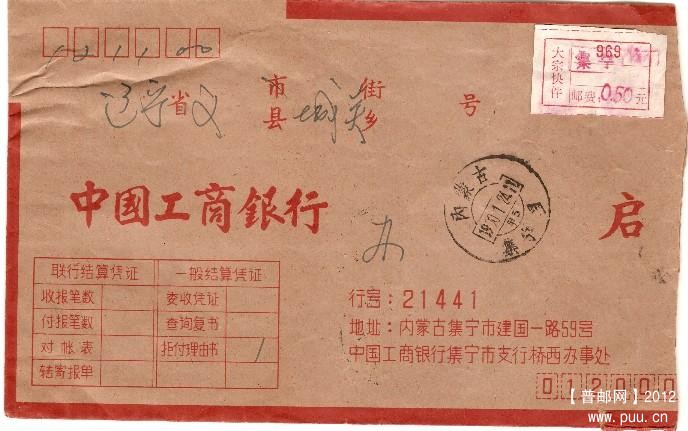 121100
大宗快件
969
集宁
邮费:0.50元
辽宁省义市县城关街乡号
中國工商銀行
办
启
内蒙古
集宁
联行结算凭证 一般结算凭证
收报笔数 委收凭证
付报笔数 查询复书
对帐表 拒付理由书 1
转寄报单
行号:21441
地址:内蒙古集宁市建国一路59号
中国工商银行集宁市支行桥西办事处
012000
【普邮网】2012
www.puu.cn